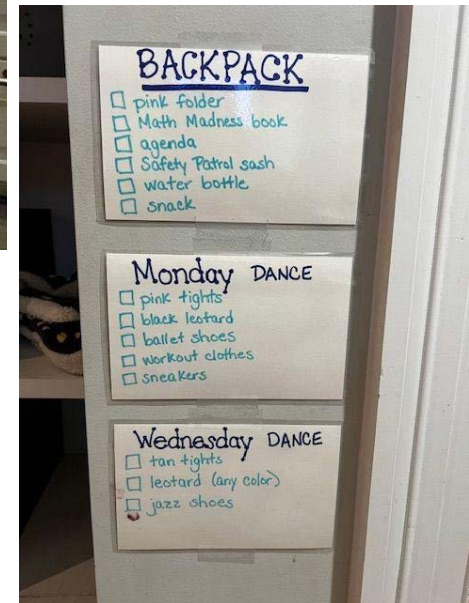 BACKPACK
pink folder
Math Madness book
agenda
Safety Patrol sash
water bottle
snack
Monday DANCE
pink tights
black leotard
ballet shoes
workout clothes
sneakers
Wednesday DANCE
tan tights
leotard (any color)
jazz shoes